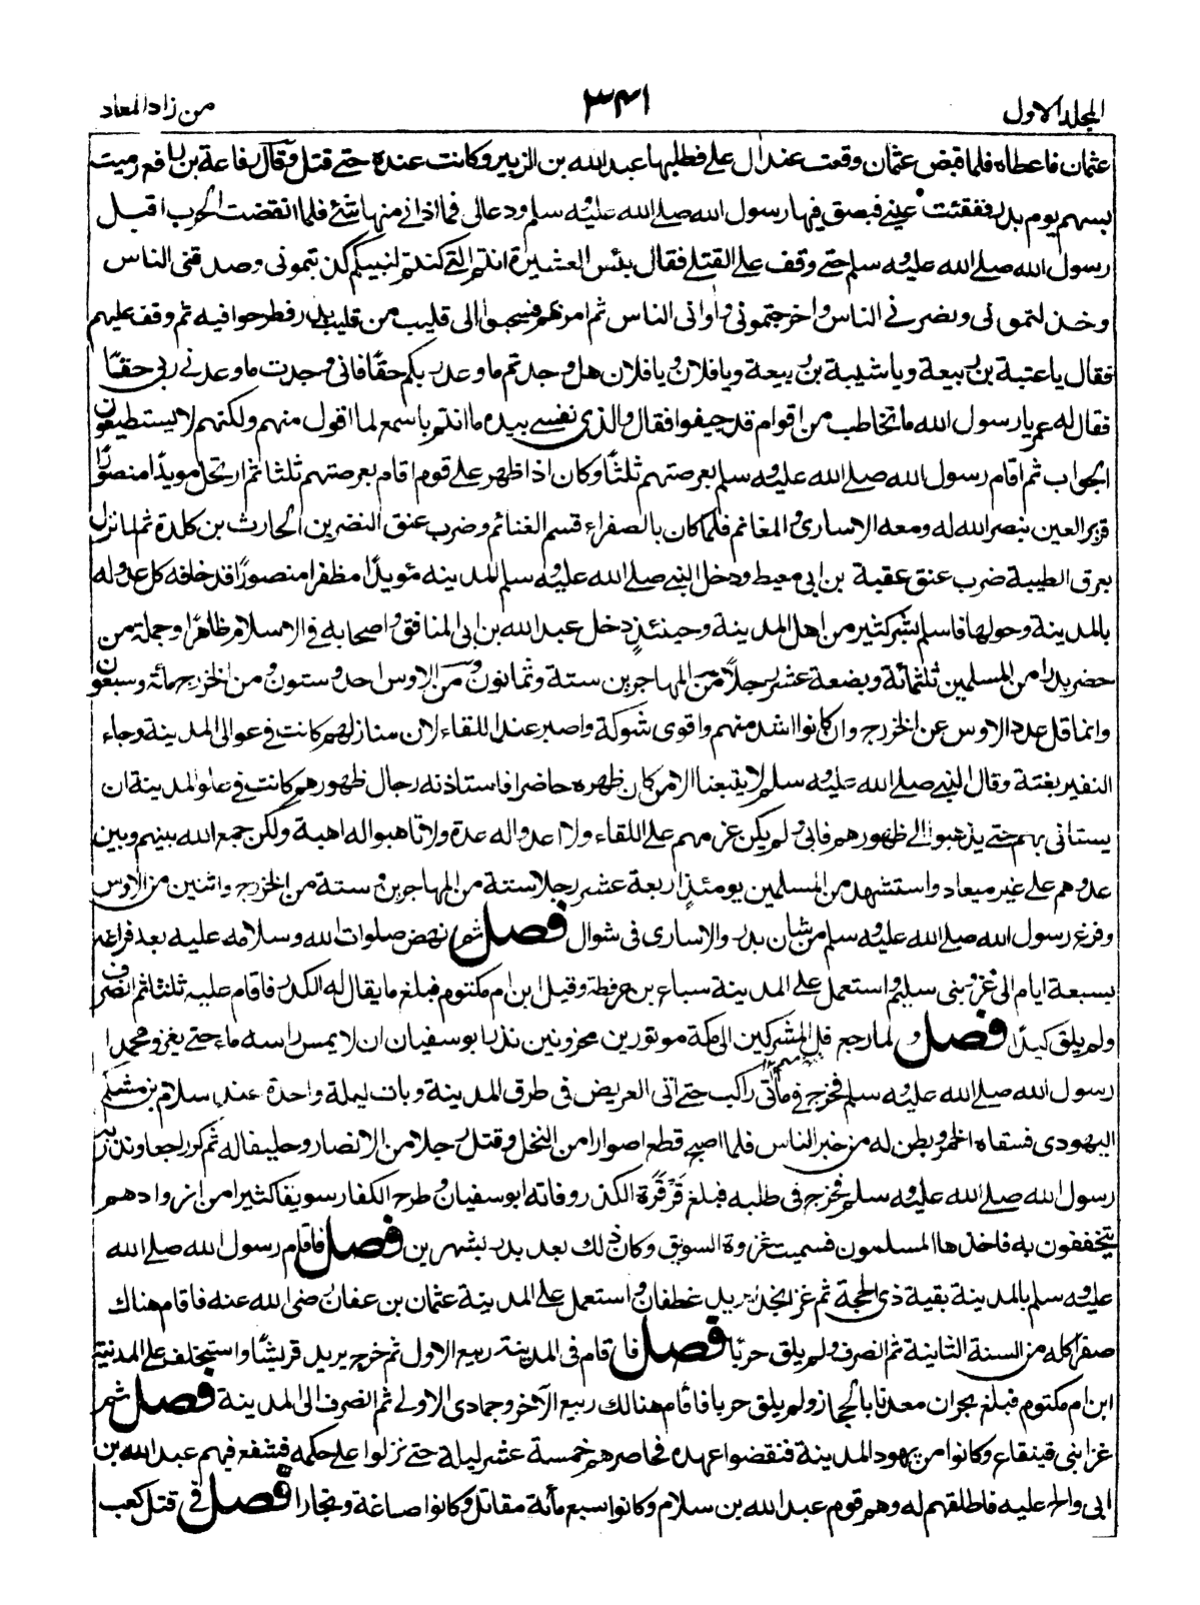 المجلد الاول
٣٤١
من زاد المعاد
عثمان فاعطاه فلما قبض عثمان وقعت عند ال علي فطلبها عبد الله بن الزبير وكانت عنده حتے قتل وقال رفاعة بن رافع رميت
بسهم يوم بدر ففقئت عينے فبصق فيها رسول الله صلے الله عليه وسلم ودعالى فما اذانے منها شئ فلما انقضت الحرب اقبل
رسول الله صلے الله عليه وسلم حتے وقف علے القتلے فقال بئس العشيرة انتم التے كنتم لنبيكم كذبتمونى وصدقنى الناس
وخذلتمونى ونصرنے الناس واخرجتمونى واوانى الناس ثم امر بهم فسحبوا الى قليب من قليب بدر فطرحوا فيه ثم وقف عليهم
فقال يا عتبة بن ربيعة ويا شيبة بن ربيعة ويا فلان ويا فلان هل وجدتم ما وعد ربكم حقا فانى وجدت ما وعدنے ربى حقّا
فقال له عمر يا رسول الله ما تخاطب من اقوام قد جيفوا فقال والذى نفسے بيده ما انتم باسمع لما اقول منهم ولكنهم لا يستطيعون
الجواب ثم اقام رسول الله صلے الله عليه وسلم بعرصتهم ثلثا وكان اذا ظهر علے قوم اقام بعرصتهم ثلثا ثم ارتحل مويدا منصورا
قرير العين بنصر الله له ومعه الاسارى والمغانم فلما كان بالصفراء قسم الغنائم وضرب عنق النضر بن الحارث بن كلدة ثم لما نزل
بعرق الظبية ضرب عنق عقبة بن ابى معيط ودخل النبے صلے الله عليه وسلم المدينه مؤيدا مظفرا منصورا قد خافه كل عدو له
بالمدينة وحولها فاسلم بشر كثير من اهل المدينة وحينئذٍ دخل عبد الله بن ابى المنافق واصحابه فے الاسلام ظاهرا وجملة من
حضر بدرا من المسلمين ثلثمائة وبضعة عشر رجلا من المهاجرين ستة وثمانون ومن الاوس احد وستون ومن الخزرج مائة وسبعون
وانما قل عدد الاوس عن الخزرج وان كانوا اشد منهم واقوى شوكة واصبر عند اللقاء لان منازلهم كانت فے عوالى المدينة وجاء
النفير بغتة وقال النبے صلے الله عليه وسلم لا يتبعنا الا من كان ظهره حاضرا فاستاذنه رجال ظهورهم كانت فے علو المدينة ان
يستانى بهم حتے يذهبوا الے ظهورهم فابى ولم يكن عزمهم علے اللقاء ولا اعدوا له عدة ولا تاهبوا له اهبة ولكن جمع الله بينهم وبين
عدوهم علے غير ميعاد واستشهد من المسلمين يومئذٍ اربعة عشر رجلا ستة من المهاجرين وستة من الخزرج واثنين من الاوس
وفرغ رسول الله صلے الله عليه وسلم من شان بدر والاسارى فى شوال فصل ثم نهض صلوات الله وسلامه عليه بعد فراغه
بسبعة ايام الى غزو بنى سليم واستعمل علے المدينة سباع بن عرفطة وقيل ابن ام مكتوم فبلغ ما يقال له الكدر فاقام عليه ثلثا ثم انصرف
ولم يلق كيدا فصل ولما رجع فل المشركين الى مكة موتورين محزونين نذر ابو سفيان ان لا يمس راسه ماء حتے يغزو محمدا
رسول الله صلے الله عليه وسلم فخرج فے مأتى راكب حتے اتى العريض فى طرف المدينة وبات ليلة واحدة عند سلام بن مشكم
اليهودى فسقاه الخمر وبطن له من خبر الناس فلما اصبح قطع اصوارا من النخل وقتل رجلا من الانصار وحليفا له ثم كر راجعا ونذر به
رسول الله صلے الله عليه وسلم فخرج فى طلبه فبلغ قَرْقَرة الكدر وفاته ابو سفيان وطرح الكفار سويقا كثيرا من ازوادهم
يتخففون به فاخذها المسلمون فسميت غزوة السويق وكان ذلك بعد بدر بشهرين فصل فاقام رسول الله صلے الله
عليه وسلم بالمدينة بقية ذى الحجة ثم غزا نجدا يريد غطفان واستعمل علے المدينة عثمان بن عفان رضى الله عنه فاقام هناك
صفرا كله من السنة الثانية ثم انصرف ولم يلق حربا فصل فاقام فى المدينة ربيع الاول ثم خرج يريد قريشا واستخلف علے المدينة
ابن ام مكتوم فبلغ بحران معدنا بالحجاز ولم يلق حربا فاقام هنالك ربيع الآخر وجمادى الاولے ثم انصرف الى المدينة فصل ثم
غزا بنى قينقاع وكانوا من يهود المدينة فنقضوا عهده فحاصرهم خمسة عشر ليلة حتے نزلوا علے حكمه فشفع فيهم عبد الله بن
ابى والح عليه فاطلقهم له وهم قوم عبد الله بن سلام وكانوا سبع مأئة مقاتل وكانوا صاغة وتجارا فصل فے قتل كعب